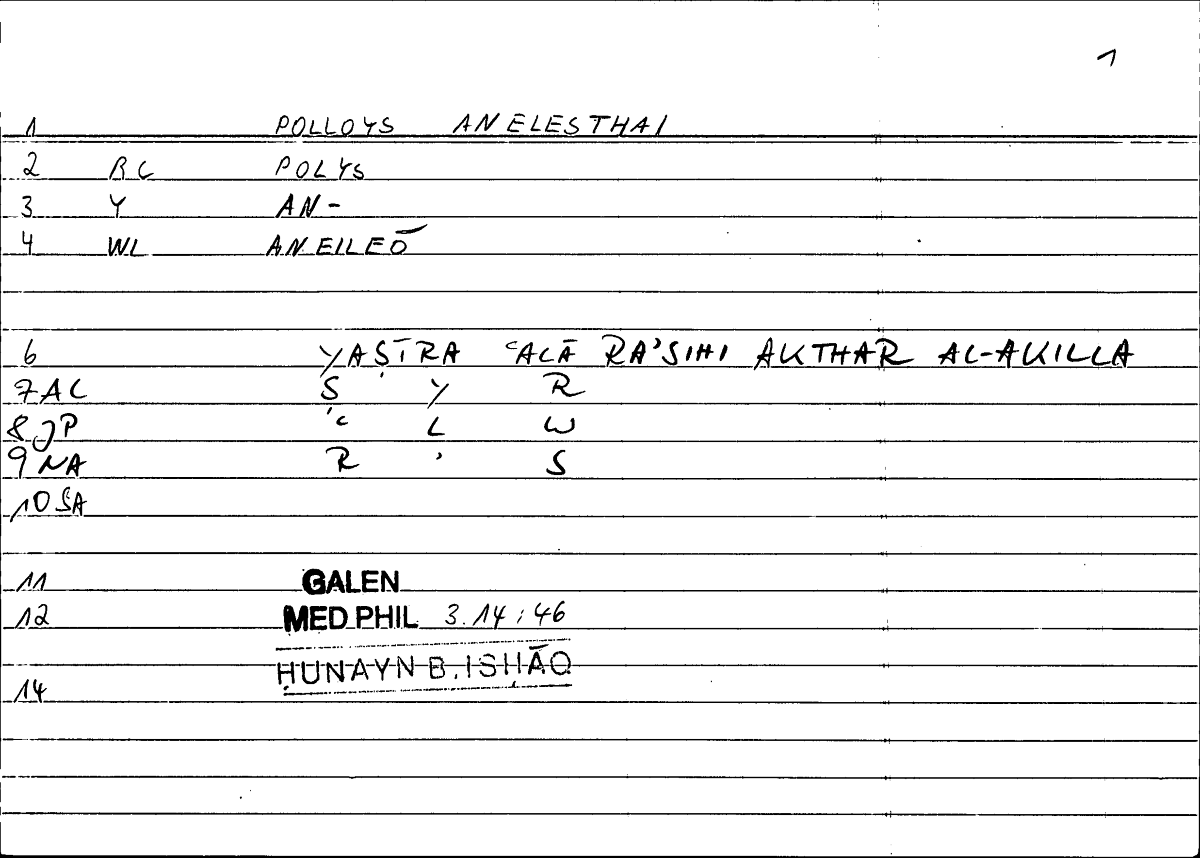 1
1 POLLOYS ANELESTHAI
2 BC POLYS
3 Y AN-
4 WL ANEILEŌ
6 YAṢĪRA ʿALĀ RAʾSIHI AKTHAR AL-AKILLA
7 AL Ṣ Y R
8 JP ʿ L W
9 NA R ʾ S
10 SA
11 GALEN
12 MED PHIL 3.14;46
ḤUNAYN B. ISḤĀQ
14